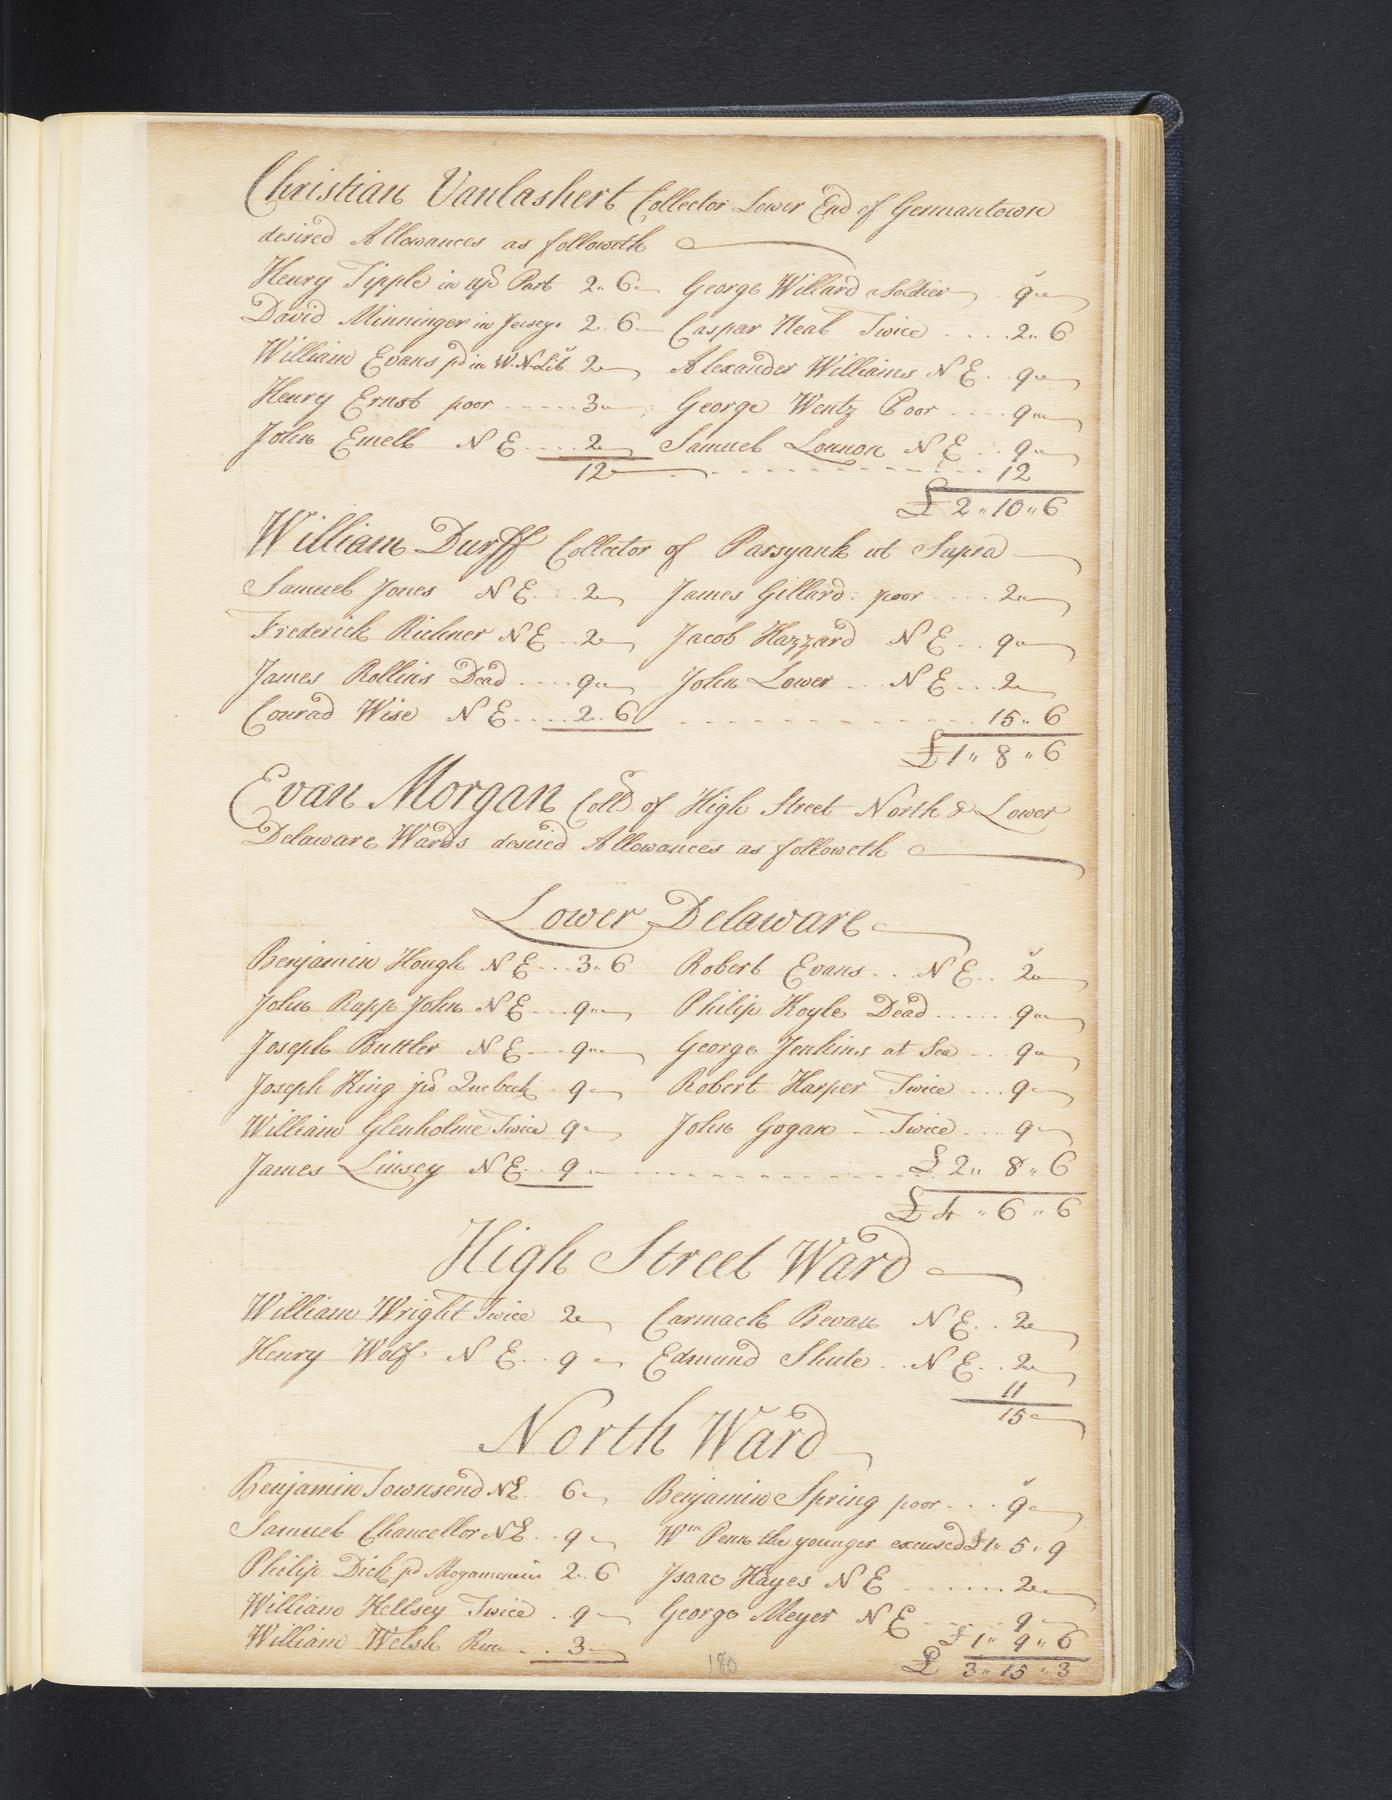 Christian Vanlashert Collector Lower End of Germantown
desired Allowances as followeth
Henry Tipple in up^d Part 2..6 George Willard a Soldier 9
David Minninger in Jersey 2..6 Caspar Neal Twice .... 2..6
William Evans p^d in W.N. Lib^s 2 Alexander Williams N E .. 9
Henry Ernst poor ..... 3 George Wentz Poor .... 9
John Emell N E .... 2 Samuel Lonnon N E .. 9
12 12
£ 2 .. 10 .. 6
William Durff Collector of Passyank ut Supra
Samuel Jones N E ... 2 James Gillard: poor .... 2
Frederick Richner N E .. 2 Jacob Hazzard N E .. 9
James Rollins Dead .... 9 John Lower ... N E ... 2
Conrad Wise N E .... 2..6 15..6
£ 1 .. 8 .. 6
Evan Morgan Coll^r of High Street North & Lower
Delaware Wards desired Allowances as followeth
Lower Delaware
Benjamin Hough N E ... 3..6 Robert Evans ... N E .. 2
John Rapp John N E ... 9 Philip Koyle Dead ...... 9
Joseph Buttler N E ... 9 George Jenkins at Sea ... 9
Joseph King p^d Quebeck . 9 Robert Harper Twice ... 9
William Glenholme Twice 9 John Gogan .. Twice ... 9
James Linsey N E .. 9 £ 2 .. 8 .. 6
£ 4 .. 6 .. 6
High Street Ward
William Wright Twice 2 Carmack Bevan N E .. 2
Henry Wolf N E .. 9 Edmund Shute .. N E .. 2
11
15
North Ward
Benjamin Townsend N E .. 6 Benjamin Spring poor .... 9
Samuel Chancellor N E .. 9 W^m Penn the younger excused £ 1 .. 5 .. 9
Philip Dick p^d 2..6 Isaac Hayes N E ...... 2
William Kellsey Twice . 9 George Meyer N E .... 9
William Welsh Run ... 3 £ 1 .. 9 .. 6
180 £ 3 .. 15 .. 3